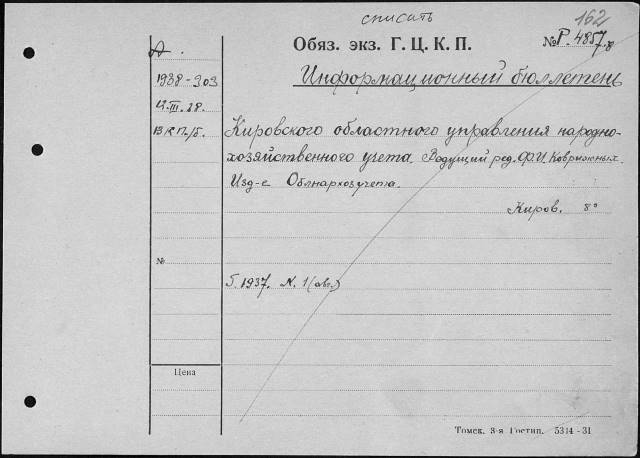 списать
162
Обяз. экз. Г. Ц. К. П.
№ Р. 4857
Д.
Информационный бюллетень
1938-303
4.III.38.
ВКП/б.
Кировского областного управления народно-
хозяйственного учета. Ведущий ред. Ф.И. Коврижных.
Изд-е Облнархозучета.
Киров. 8°
№
Г. 1937. N. 1 (авг.)
Цена
Томск. 3-я Гостип. 5314-31